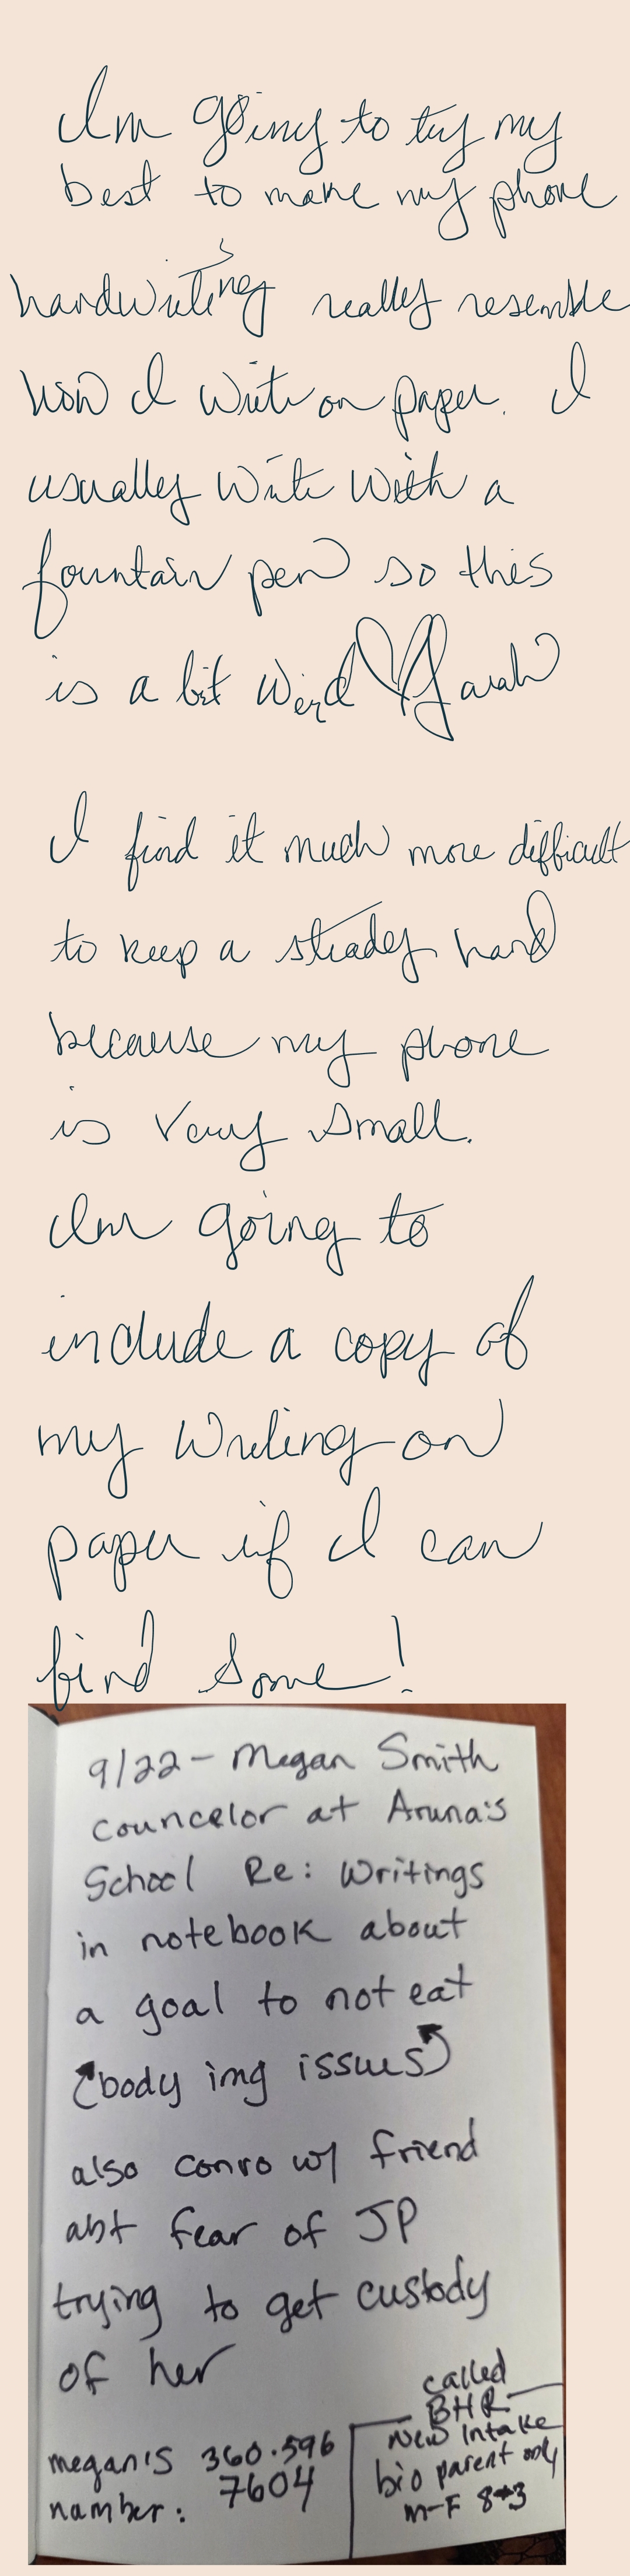 Im going to try my
best to make my phone
handwriting really resemble
how I write on paper. I
usually write with a
fountain pen so this
is a bit weird Sarah
I find it much more difficult
to keep a steady hand
because my phone
is very small.
Im going to
include a copy of
my writing on
paper if I can
find some!
9/22 - Megan Smith
councelor at Aruna's
School Re: Writings
in notebook about
a goal to not eat
(body img issues)
also convo w/ friend
abt fear of JP
trying to get custody
of her
megan's 360.596
number: 7604
called
BHR
New Intake
bio parent only
M-F 8→3